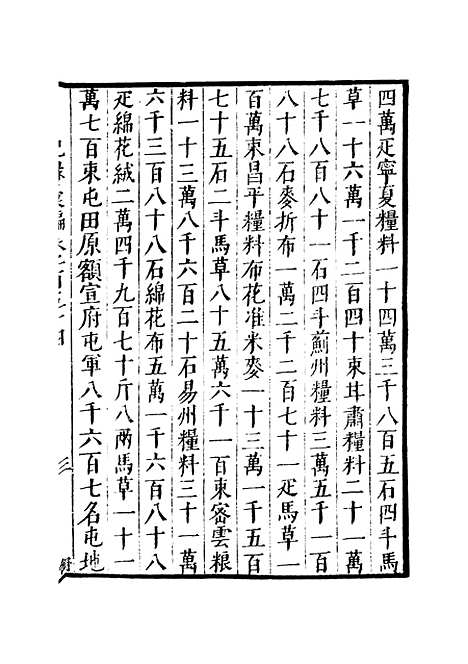 四萬疋寧夏糧料一十四萬三千八百五石四斗馬
草一十六萬一千二百四十束甘肅糧料二十一萬
七千八百八十一石四斗薊州糧料三萬五千一百
八十八石麥折布一萬二千二百七十一疋馬草一
百萬束昌平糧料布花准米麥一十三萬一千五百
七十五石二斗馬草八十五萬六千一百束密雲粮
料一十三萬八千六百二十石易州糧料三十一萬
六千三百八十八石綿花布五萬一千六百八十八
疋綿花絨二萬四千九百七十斤八兩馬草一十一
萬七百束屯田原額宣府屯軍八千六百七名屯地
三